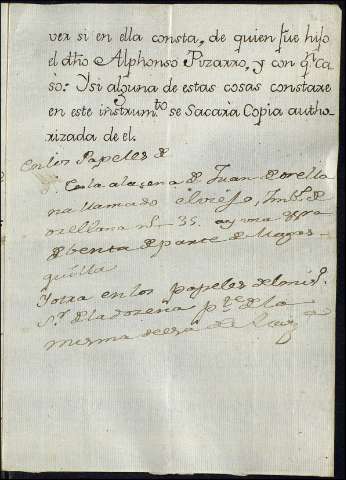 ver si en ella consta, de quien fue hijo
el dho Alphonso Pizarro, y con q.e Ca
so: Y si alguna de estas cosas constare
en este instrum.to se Sacarà Copia autho
rizada de el.
En los Papeles de
En la alaçena de Juan de orella
na llamado el viejo,
orellana n.o 35. ay una
de benta de parte de Magas
quilla
Y otra en los papeles de
de la dozena p.te de la
misma